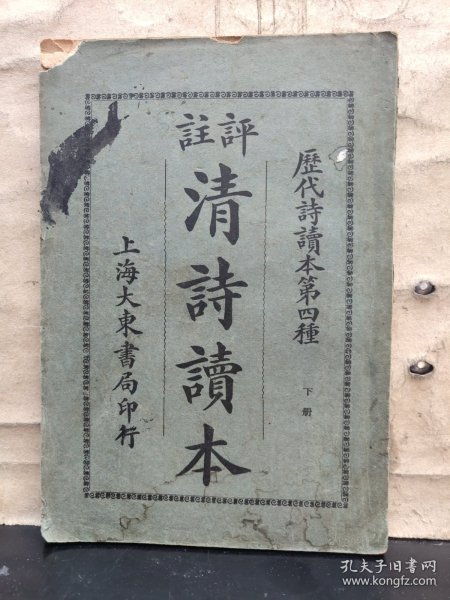 歷代詩讀本第四種
下册
評註
清詩讀本
上海大東書局印行
孔夫子旧书网
www.kongfz.com